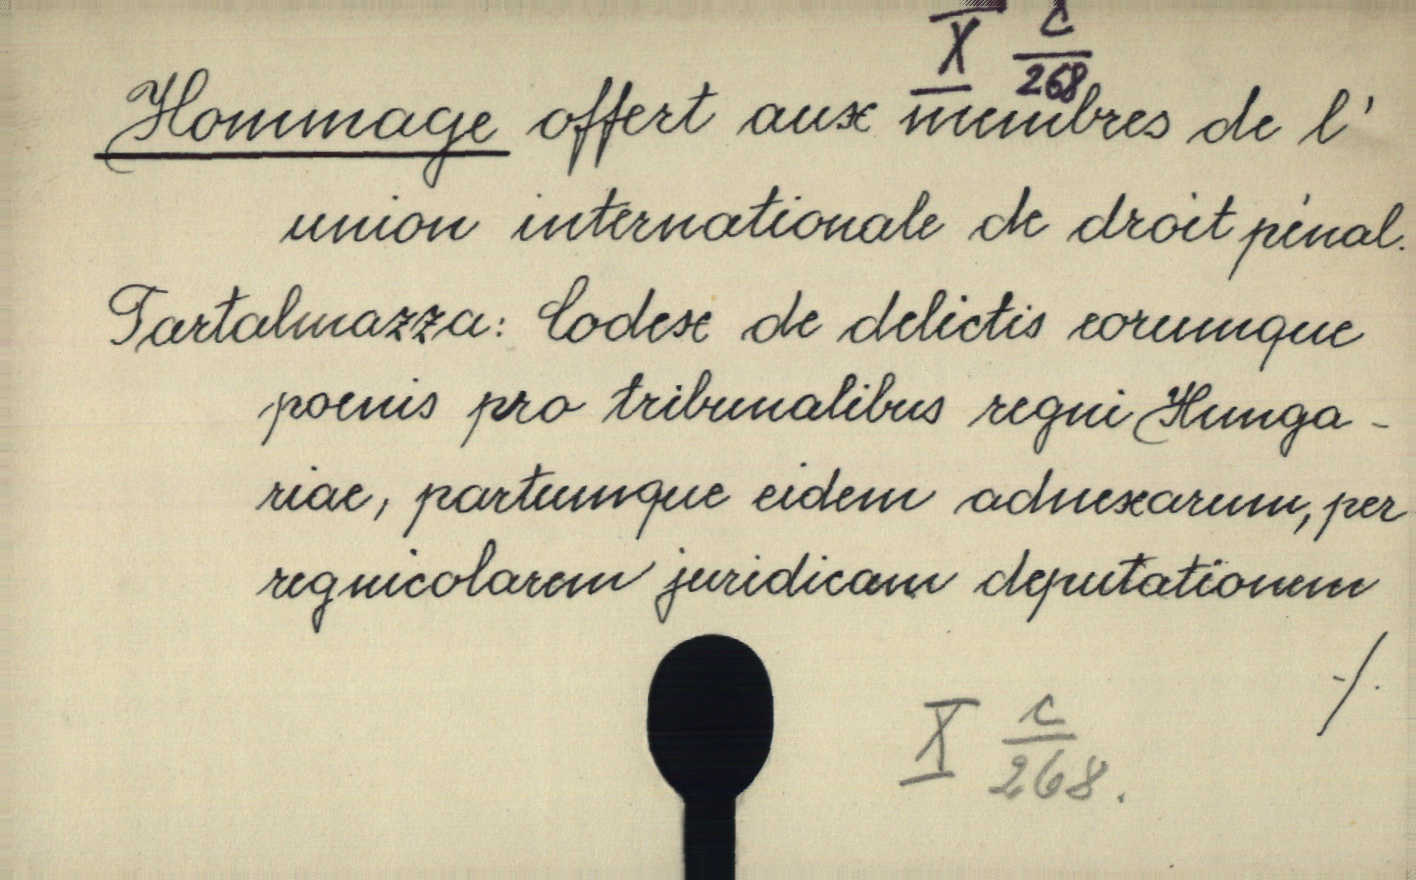 X c/268
Hommage offert aux membres de l'
union internationale de droit pénal.
Tartalmazza: Codex de delictis eorumque
poenis pro tribunalibus regni Hunga-
riae, partiumque eidem adnexarum, per
regnicolarem juridicam deputationem
./.
X c/268.